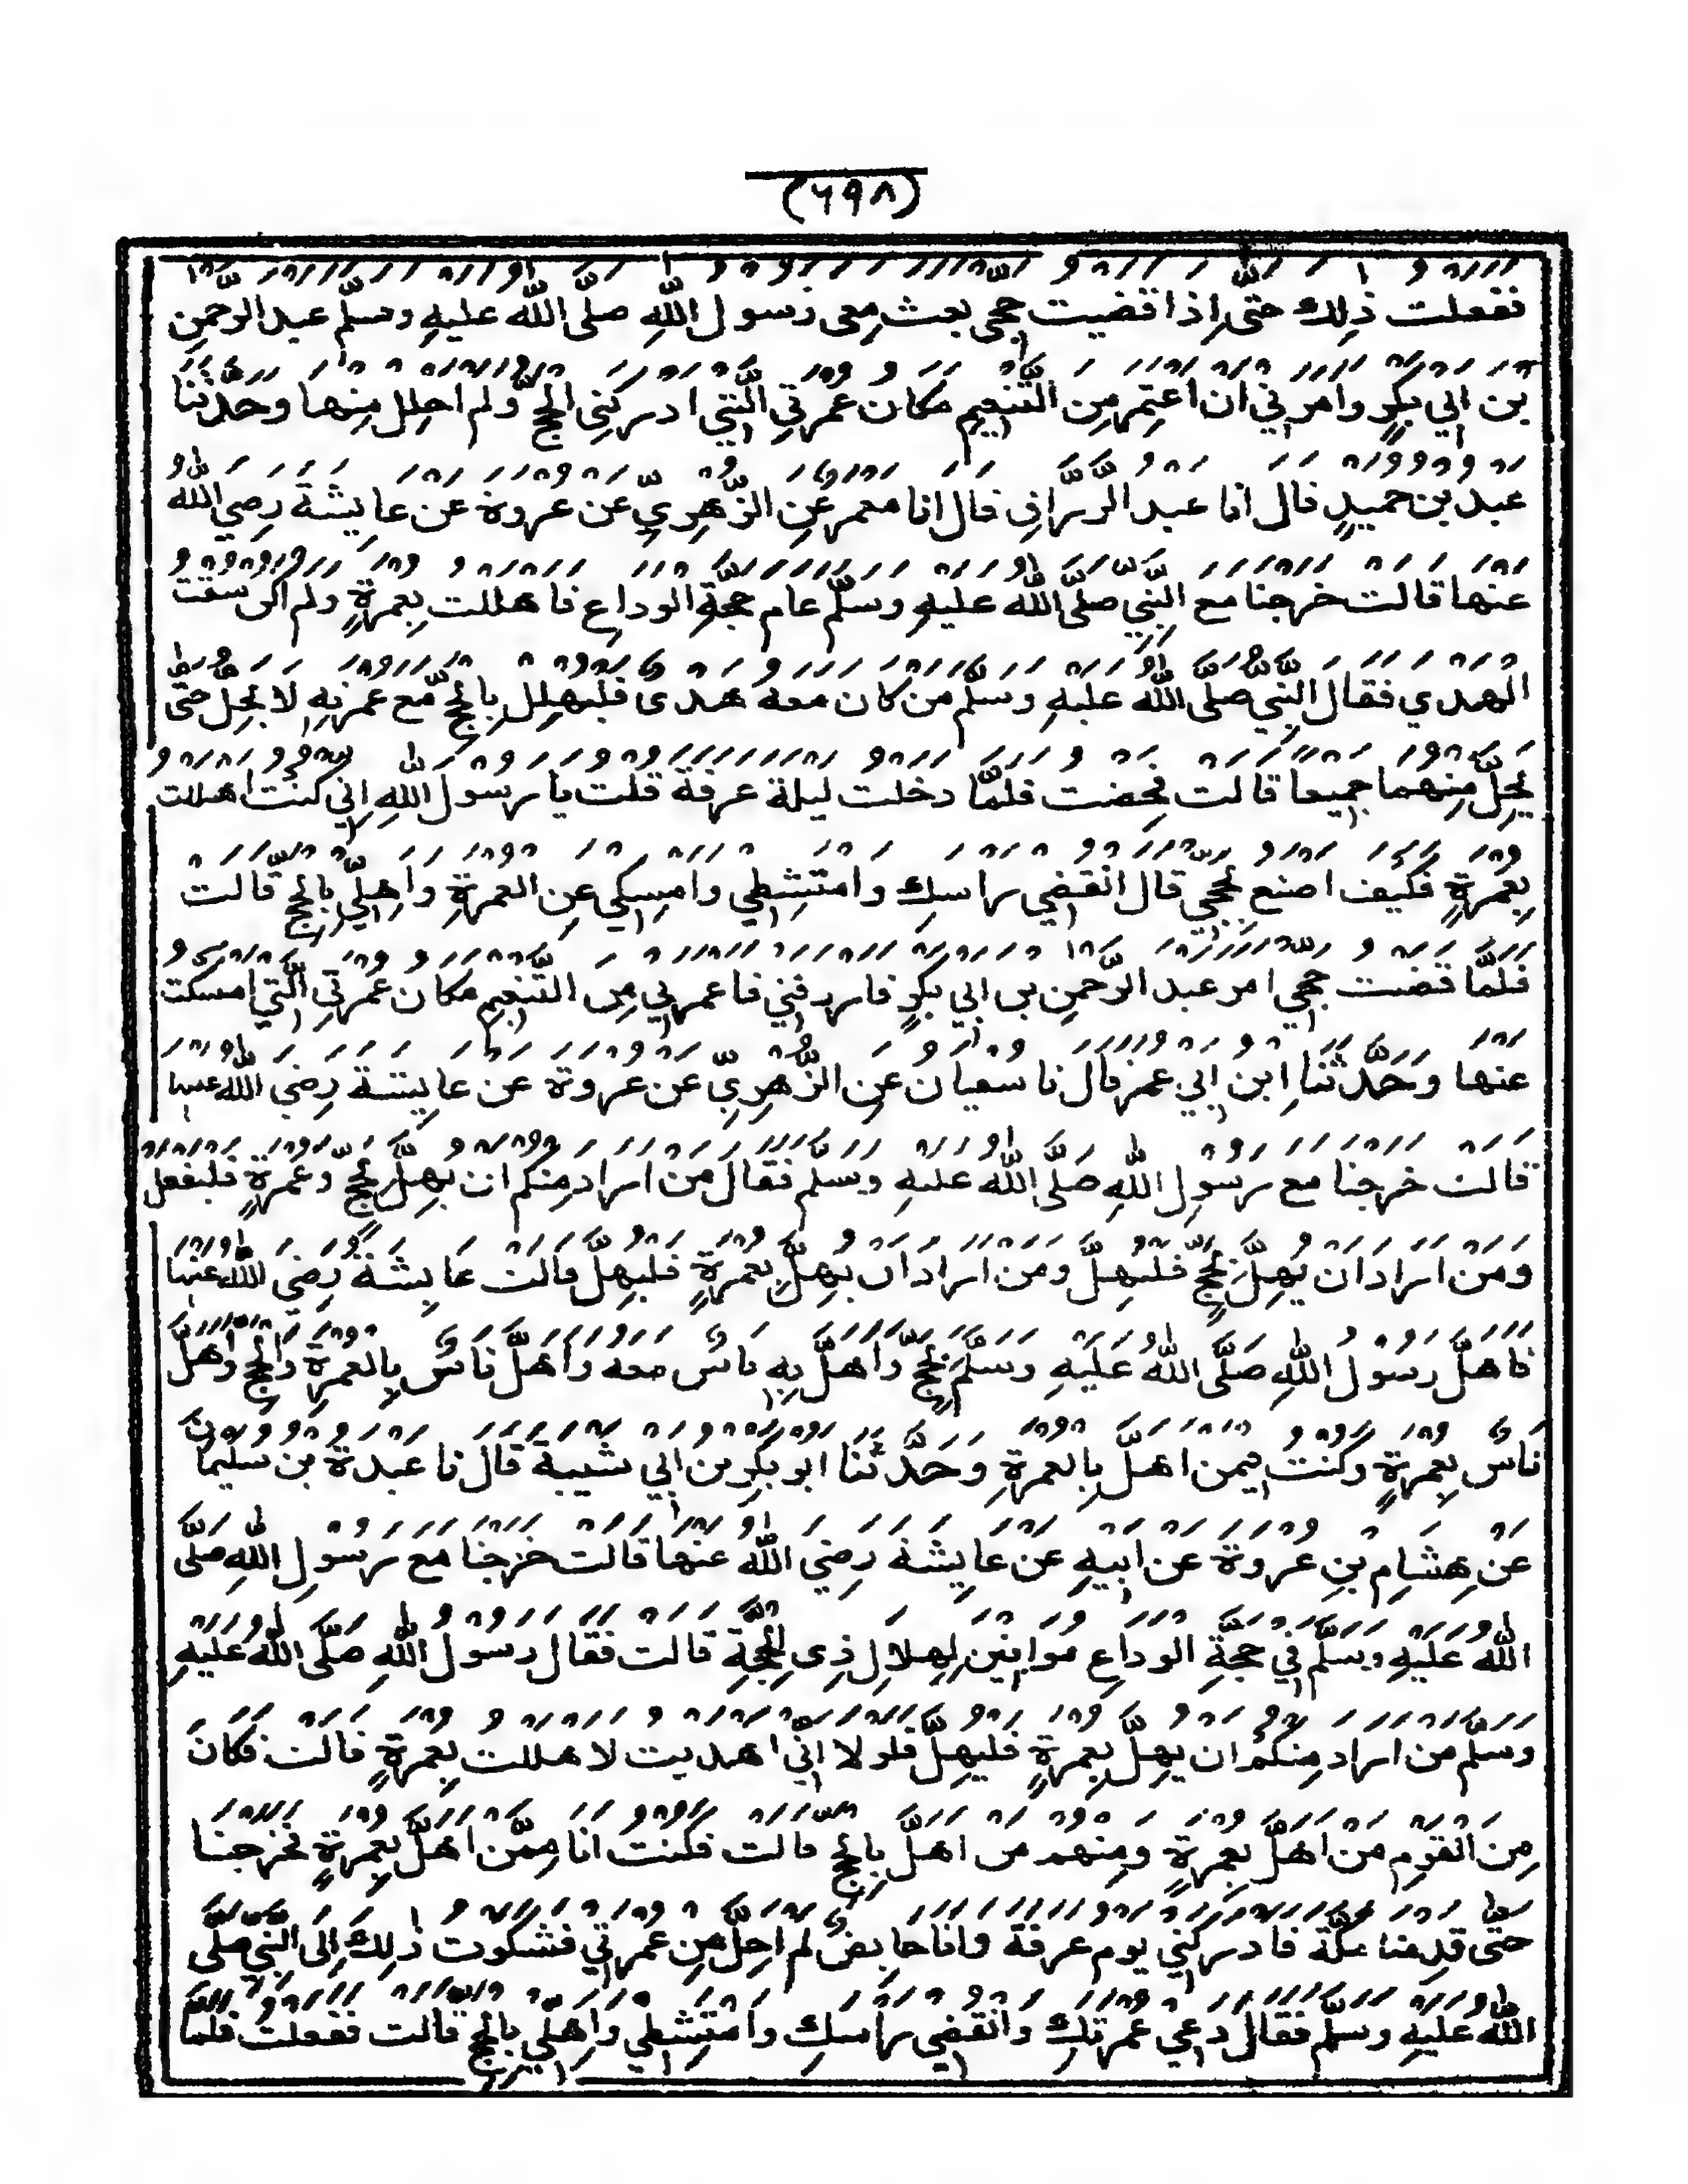 (٦٩٨)
ففعلت ذلك حتى اذا قضيت حجي بعث معي رسول الله صلى الله عليه وسلم عبد الرحمن
بن ابي بكر وامرني ان اعتمر من التنعيم مكان عمرتي التي ادركني الحج ولم احلل منها وحدثنا
عبد بن حميد قال انا عبد الرزاق قال انا معمر عن الزهري عن عروة عن عايشة رضي الله
عنها قالت خرجنا مع النبي صلى الله عليه وسلم عام حجة الوداع فاهللت بعمرة ولم اكن سقت
الهدي فقال النبي صلى الله عليه وسلم من كان معه هدى فليهلل بالحج مع عمرته لا يحل حتى
يحل منهما جميعا قالت فحضت فلما دخلت ليلة عرفة قلت يا رسول الله اني كنت اهللت
بعمرة فكيف اصنع بحجي قال انقضي راسك وامتشطي وامسكي عن العمرة واهلي بالحج قالت
فلما قضت حجي امر عبد الرحمن بن ابي بكر فاردفني فاعمرني من التنعيم مكان عمرتي التي امسكت
عنها وحدثنا ابن ابي عمر قال نا سفيان عن الزهري عن عروة عن عايشة رضي الله عنها
قالت خرجنا مع رسول الله صلى الله عليه وسلم فقال من اراد منكم ان يهل بحج وعمرة فليفعل
ومن اراد ان يهل بحج فليهل ومن اراد ان يهل بعمرة فليهل قالت عايشة رضي الله عنها
فاهل رسول الله صلى الله عليه وسلم بحج واهل به ناس معه واهل ناس بالعمرة والحج واهل
ناس بعمرة وكنت فيمن اهل بالعمرة وحدثنا ابو بكر بن ابي شيبة قال نا عبدة بن سليمان
عن هشام بن عروة عن ابيه عن عايشة رضي الله عنها قالت خرجنا مع رسول الله صلى
الله عليه وسلم في حجة الوداع موافين لهلال ذى الحجة قالت فقال رسول الله صلى الله عليه
وسلم من اراد منكم ان يهل بعمرة فليهل فلولا اني اهديت لاهللت بعمرة قالت فكان
من القوم من اهل بعمرة ومنهم من اهل بالحج قالت فكنت انا ممن اهل بعمرة فخرجنا
حتى قدمنا مكة فادركني يوم عرفة وانا حايض لم احل من عمرتي فشكوت ذلك الى النبي صلى
الله عليه وسلم فقال دعي عمرتك وانقضي راسك وامتشطي واهلي بالحج قالت ففعلت فلما